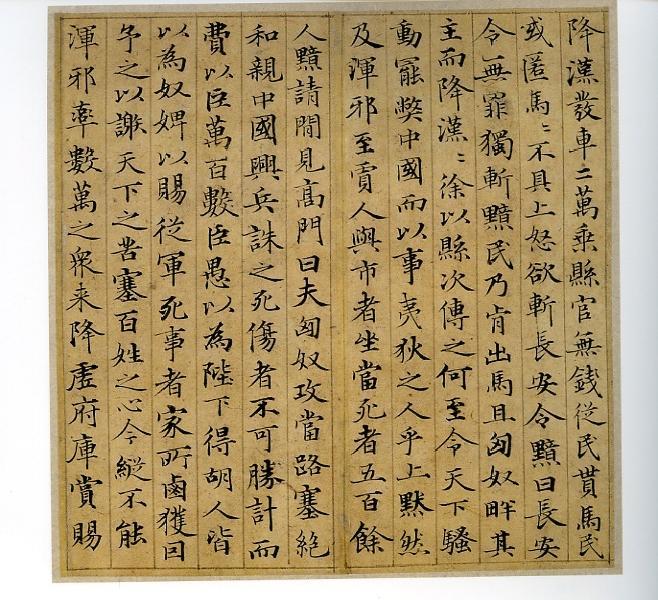 降漢發車二萬乘縣官無錢從民貰馬民
或匿馬〻不具上怒欲斬長安令黯曰長安
令無罪獨斬黯民乃肯出馬且匈奴畔其
主而降漢〻徐以縣次傳之何至令天下騷
動罷弊中國而以事夷狄之人乎上默然
及渾邪至賈人與市者坐當死者五百餘
人黯請閒見高門曰夫匈奴攻當路塞絕
和親中國興兵誅之死傷者不可勝計而
費以巨萬百數臣愚以為陛下得胡人皆
以為奴婢以賜從軍死事者家所鹵獲曰
予之以謝天下之苦塞百姓之心今縱不能
渾邪率數萬之衆来降虛府庫賞賜